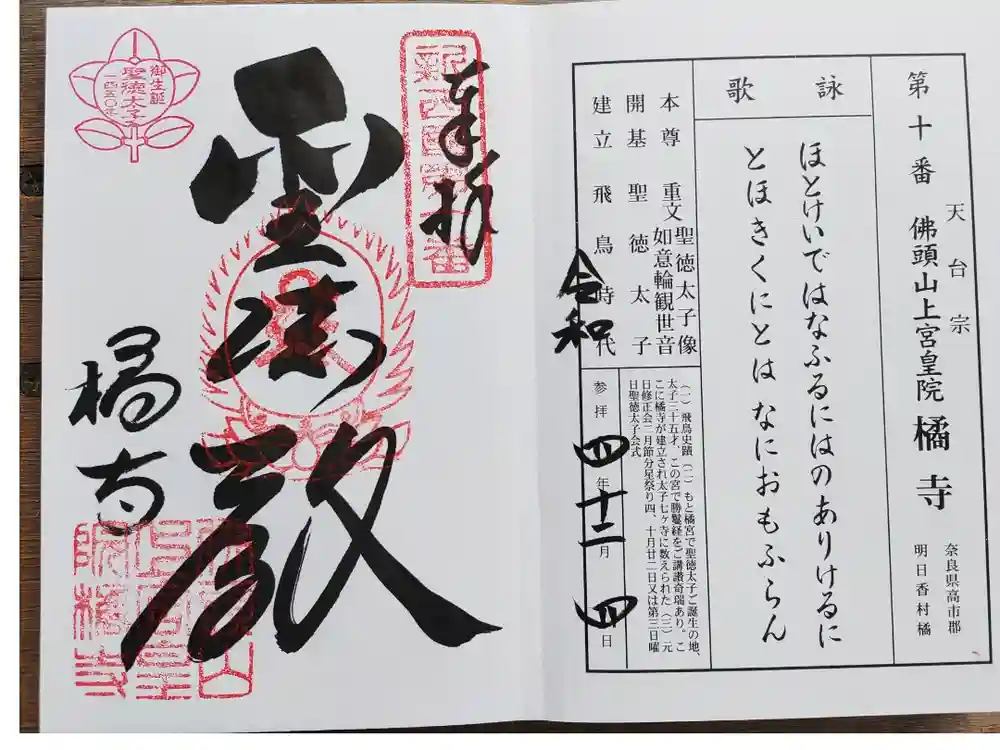 第十番
天台宗
佛頭山上宮皇院 橘寺
奈良県高市郡
明日香村橘
詠歌
ほとけいではなふるにはのありけるに
とほきくにとは なにおもふらん
本尊 重文 聖徳太子像
如意輪観世音
開基 聖徳太子
建立 飛鳥時代
(一)飛鳥史蹟(二)もと橘宮で聖徳太子ご誕生の地、
太子三十五才、この宮で勝鬘経をご講讃奇瑞あり。こ
こに橘寺が建立され太子七ヶ寺に数えられた(三)元
日修正会二月節分星祭り四、十月廿二日又は第三日曜
日聖徳太子会式
参拝 令和四年十二月四日
奉拝
新西国第十番
聖徳殿
橘寺
御生誕
聖徳太子
一四五〇年